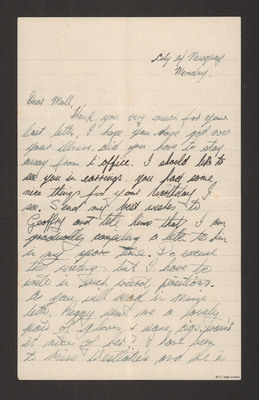 City of Newquay
Monday.
Dear Moll,
Thank you very much for your
last letter, I hope you have got over
your illness. did you have to stay
away from t office. I should like to
see you in earrings you had some
nice things for your birthday I
see. Send my best wishes to
Geoffry and tell him that I am
gradually composing a letter to him
in my spare time. So excuse
the writing but I have to
write in such weird positions.
As you will read in Mums
letter Peggy sent me a lovely
pair of gloves & some cigs, wasn't
it nice of her? I have been
to Miss and she is